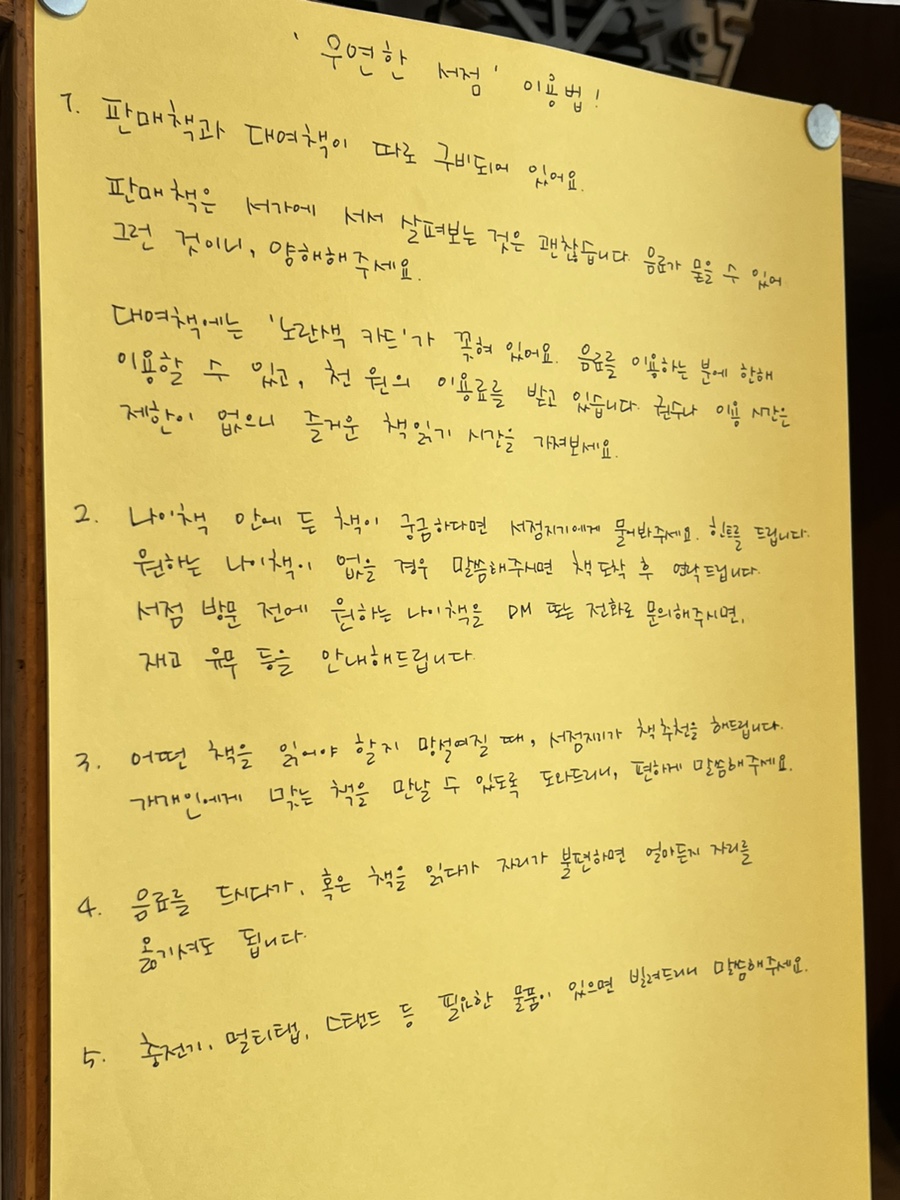 '우연한 서점' 이용법!
1. 판매책과 대여책이 따로 구비되어 있어요.
판매책은 서가에 서서 살펴보는 것은 괜찮습니다. 음료가 묻을 수 있어
그런 것이니, 양해해주세요.
대여책에는 '노란색 카드'가 꽂혀 있어요. 음료를 이용하는 분에 한해
이용할 수 있고, 천 원의 이용료를 받고 있습니다. 권수나 이용 시간은
제한이 없으니 즐거운 책읽기 시간을 가져보세요.
2. 나이책 안에 든 책이 궁금하다면 서점지기에게 물어봐주세요. 힌트를 드립니다.
원하는 나이책이 없을 경우 말씀해주시면 책 도착 후 연락드립니다.
서점 방문 전에 원하는 나이책을 DM 또는 전화로 문의해주시면,
재고 유무 등을 안내해드립니다.
3. 어떤 책을 읽어야 할지 망설여질 때, 서점지기가 책 추천을 해드립니다.
개개인에게 맞는 책을 만날 수 있도록 도와드리니, 편하게 말씀해주세요.
4. 음료를 드시다가, 혹은 책을 읽다가 자리가 불편하면 얼마든지 자리를
옮기셔도 됩니다.
5. 충전기, 멀티탭, 스탠드 등 필요한 물품이 있으면 빌려드리니 말씀해주세요.